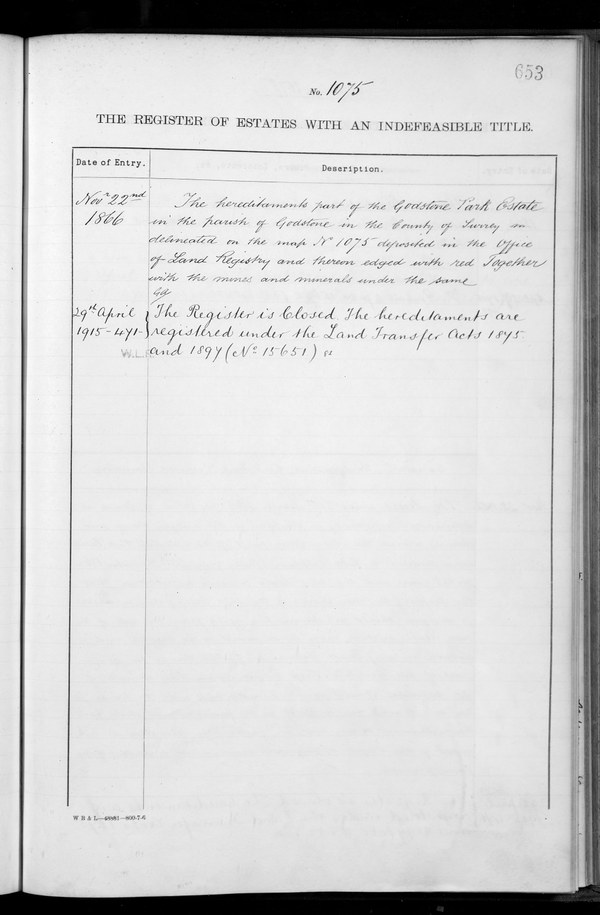 653
No. 1075
THE REGISTER OF ESTATES WITH AN INDEFEASIBLE TITLE.
Date of Entry.
Description.
Novr 22nd
1866
The hereditaments part of the Godstone Park Estate
in the parish of Godstone in the County of Surrey as
delineated on the map No 1075 deposited in the Office
of Land Registry and thereon edged with red Together
with the mines and minerals under the same
29th April
1915-471-
The Register is Closed. The hereditaments are
registered under the Land Transfer Acts 1875
and 1897 (No 15651)
W B & L—48861—800-7-6